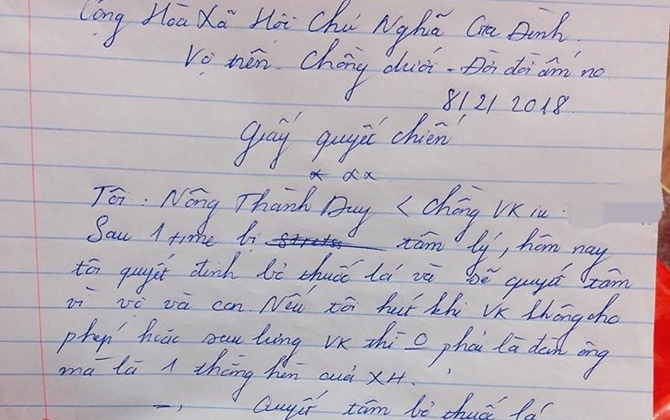 Cộng Hòa Xã Hội Chủ Nghĩa Gia Đình.
Vợ trên - Chồng dưới - Đời đời ấm no
8/2/2018
Giấy quyết chiến
Tôi: Nông Thành Duy < Chồng VK iu:
Sau 1 time bị stress tâm lý, hôm nay
tôi quyết định bỏ thuốc lá và sẽ quyết tâm
vì vợ và con. Nếu tôi hút khi VK không cho
phép hoặc sau lưng VK thì 0 phải là đàn ông
mà là 1 thằng hèn của XH.
Quyết tâm bỏ thuốc lá